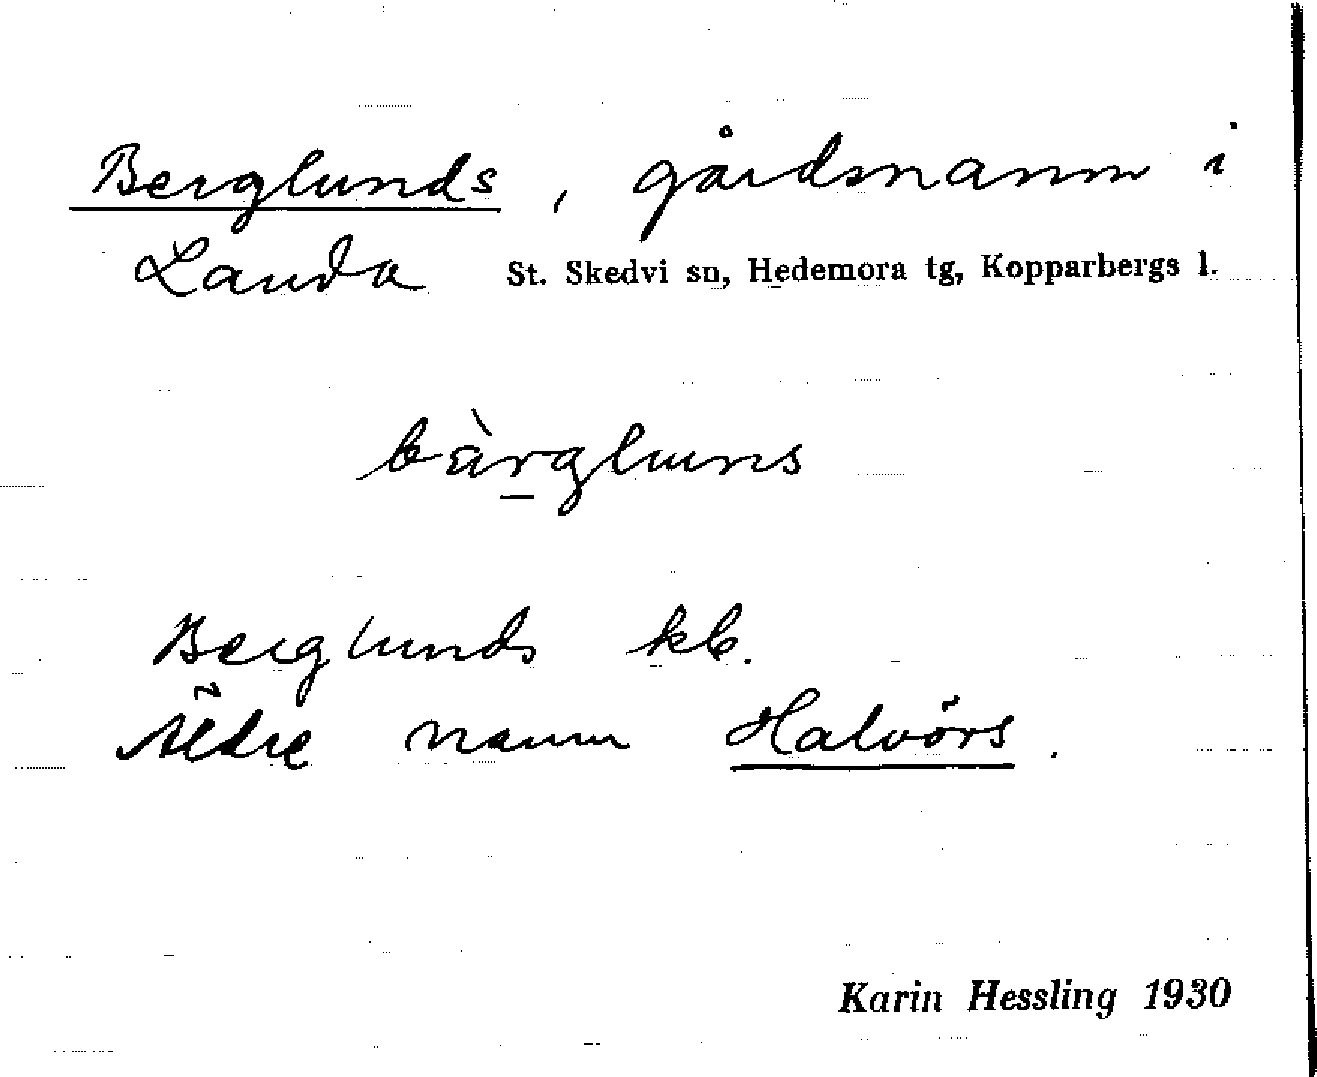 Berglunds, gårdsnamn i
Landa St. Skedvi sn, Hedemora tg, Kopparbergs l.
bàrgluns
Berglunds kb.
Äldre namn Halvörs.
Karin Hessling 1930